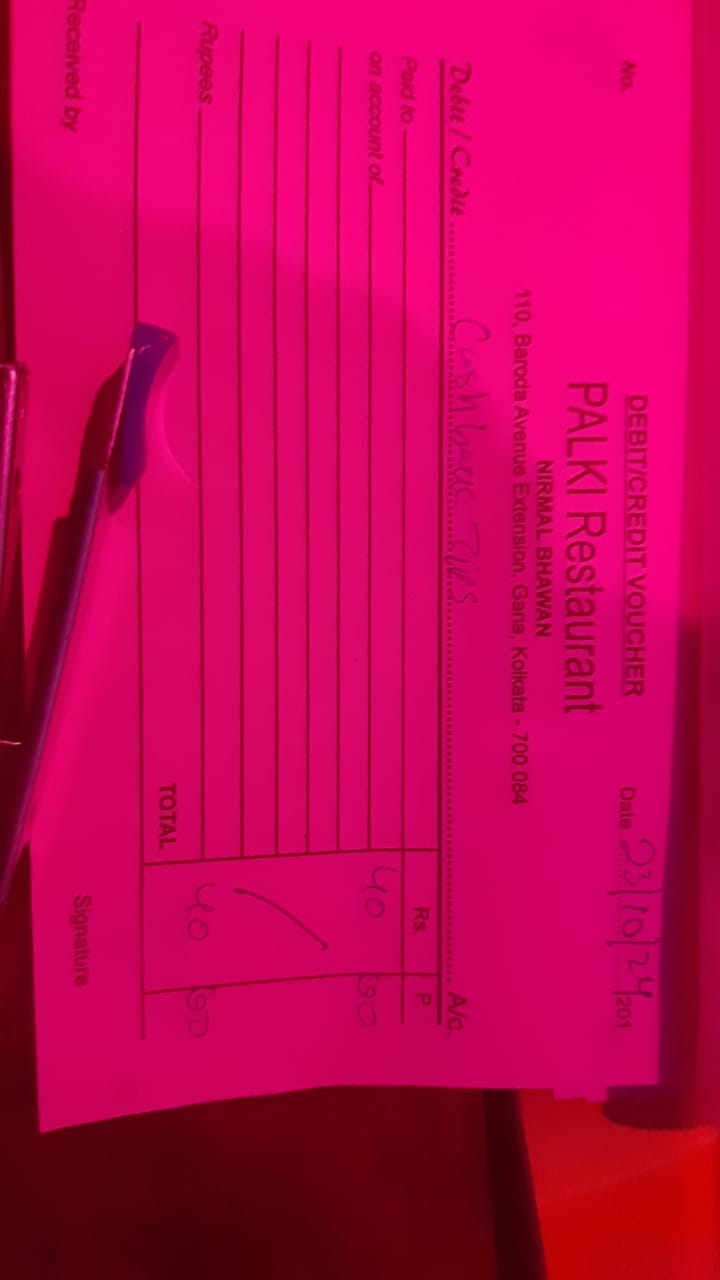 No.
DEBIT/CREDIT VOUCHER
PALKI Restaurant
Date 23/10/24/201
NIRMAL BHAWAN
110, Baroda Avenue Extension, Garia, Kolkata - 700 084
Debit / Credit Cash back Tips A/c.
Paid to Rs. P
on account of 40 00
Rupees
TOTAL 40 00
Received by Signature